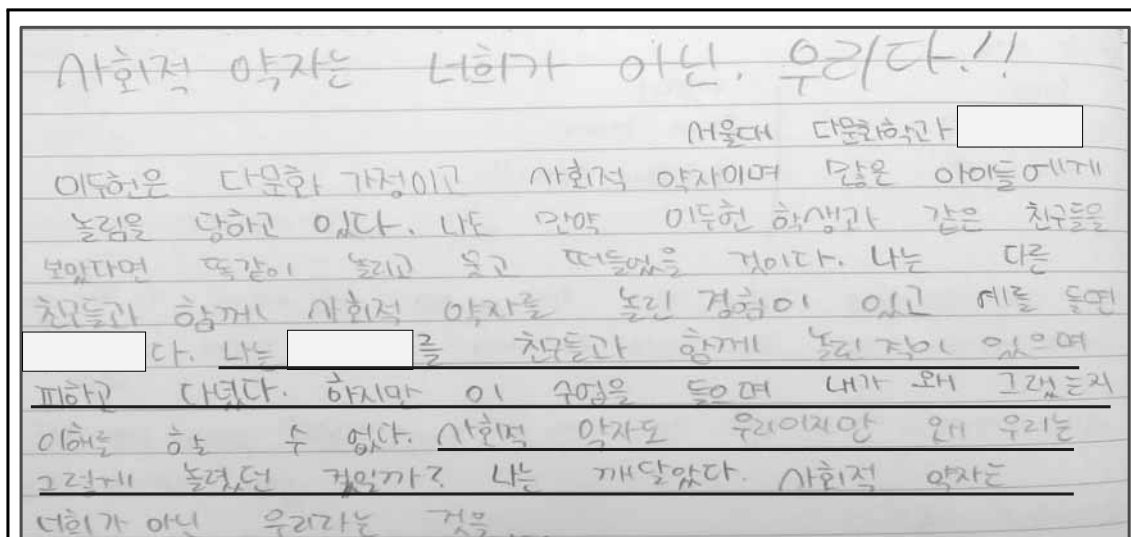 사회적 약자는 너희가 아닌. 우리다.!!
서울대 다문화학과
이두헌은 다문화 가정이고 사회적 약자이며 많은 아이들에게
놀림을 당하고 있다. 나도 만약 이두헌 학생과 같은 친구들을
보았다면 똑같이 놀리고 웃고 떠들었을 것이다. 나는 다른
친구들과 함께 사회적 약자를 놀린 경험이 있고 예를 들면
다. 나는 를 친구들과 함께 놀린 적이 있으며
피하고 다녔다. 하지만 이 수업을 들으며 내가 왜 그랬는지
이해를 할 수 없다. 사회적 약자도 우리이지만 왜 우리는
그렇게 놀렸던 것일까? 나는 깨달았다. 사회적 약자는
너희가 아닌 우리라는 것을